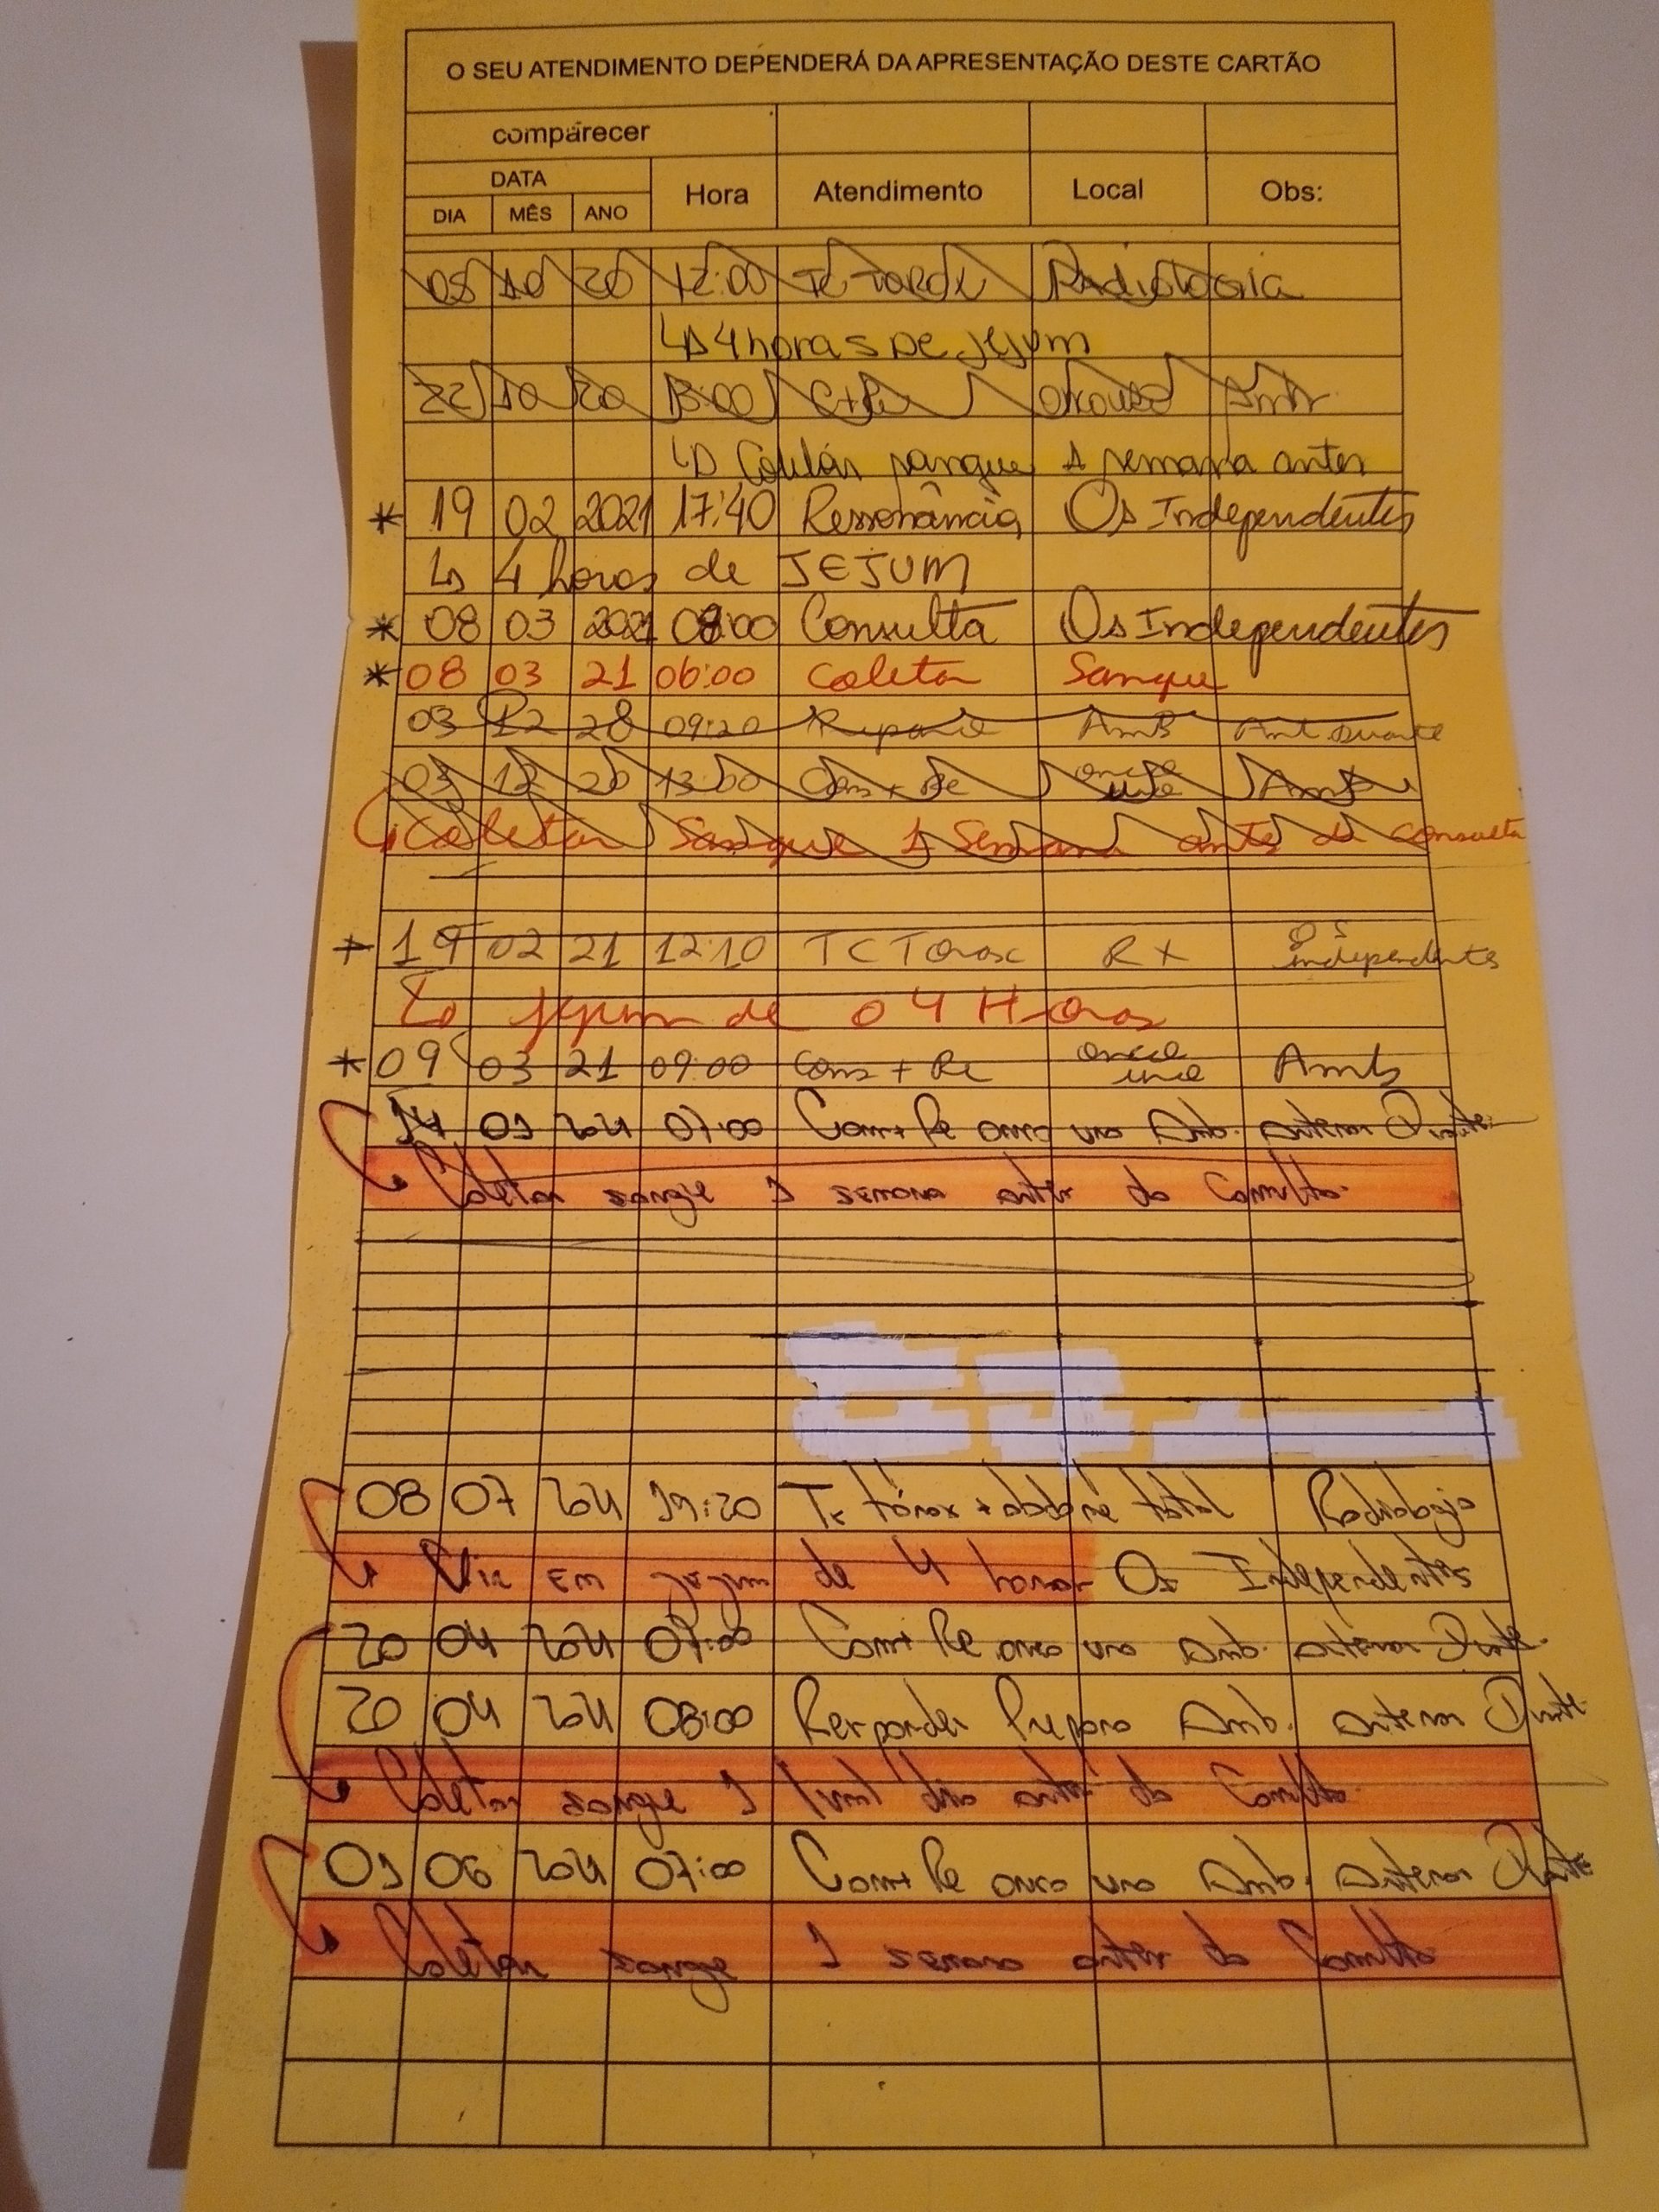 O SEU ATENDIMENTO DEPENDERÁ DA APRESENTAÇÃO DESTE CARTÃO
comparecer
DATA Hora Atendimento Local Obs:
DIA MÊS ANO
08 10 20 12:00 Radiologia
↳ 4 horas de jejum
22 10 20 13:00 Amb
↳ Coletar sangue 1 semana antes
* 19 02 2021 17:40 Ressonância Os Independentes
↳ 4 horas de JEJUM
* 08 03 2021 08:00 Consulta Os Independentes
* 08 03 21 06:00 Coletar Sangue
03 12 20 09:20 AmB
03 12 20 13:00 Cons + Re onco uro Amb
Coletar Sangue 1 Semana antes da consulta
19 02 21 12:10 TC Torax RX Os independentes
↳ jejum de 04 Horas
* 09 03 21 09:00 Cons + Re onco uro Amb
07:00 Con+ Re onco uro Amb.
Coletar sangue 1 semana antes da Consulta
08 07 19:20 Tc tórax + abdome total Radiologia
Vir em jejum de 4 horas Os Independentes
20 04 07:00 Con+ Re onco uro Amb.
20 04 08:00 Amb.
Coletar sangue 1 antes da Consulta
01 06 07:00 Con+ Re onco uro Amb.
Coletar sangue 1 semana antes da Consulta